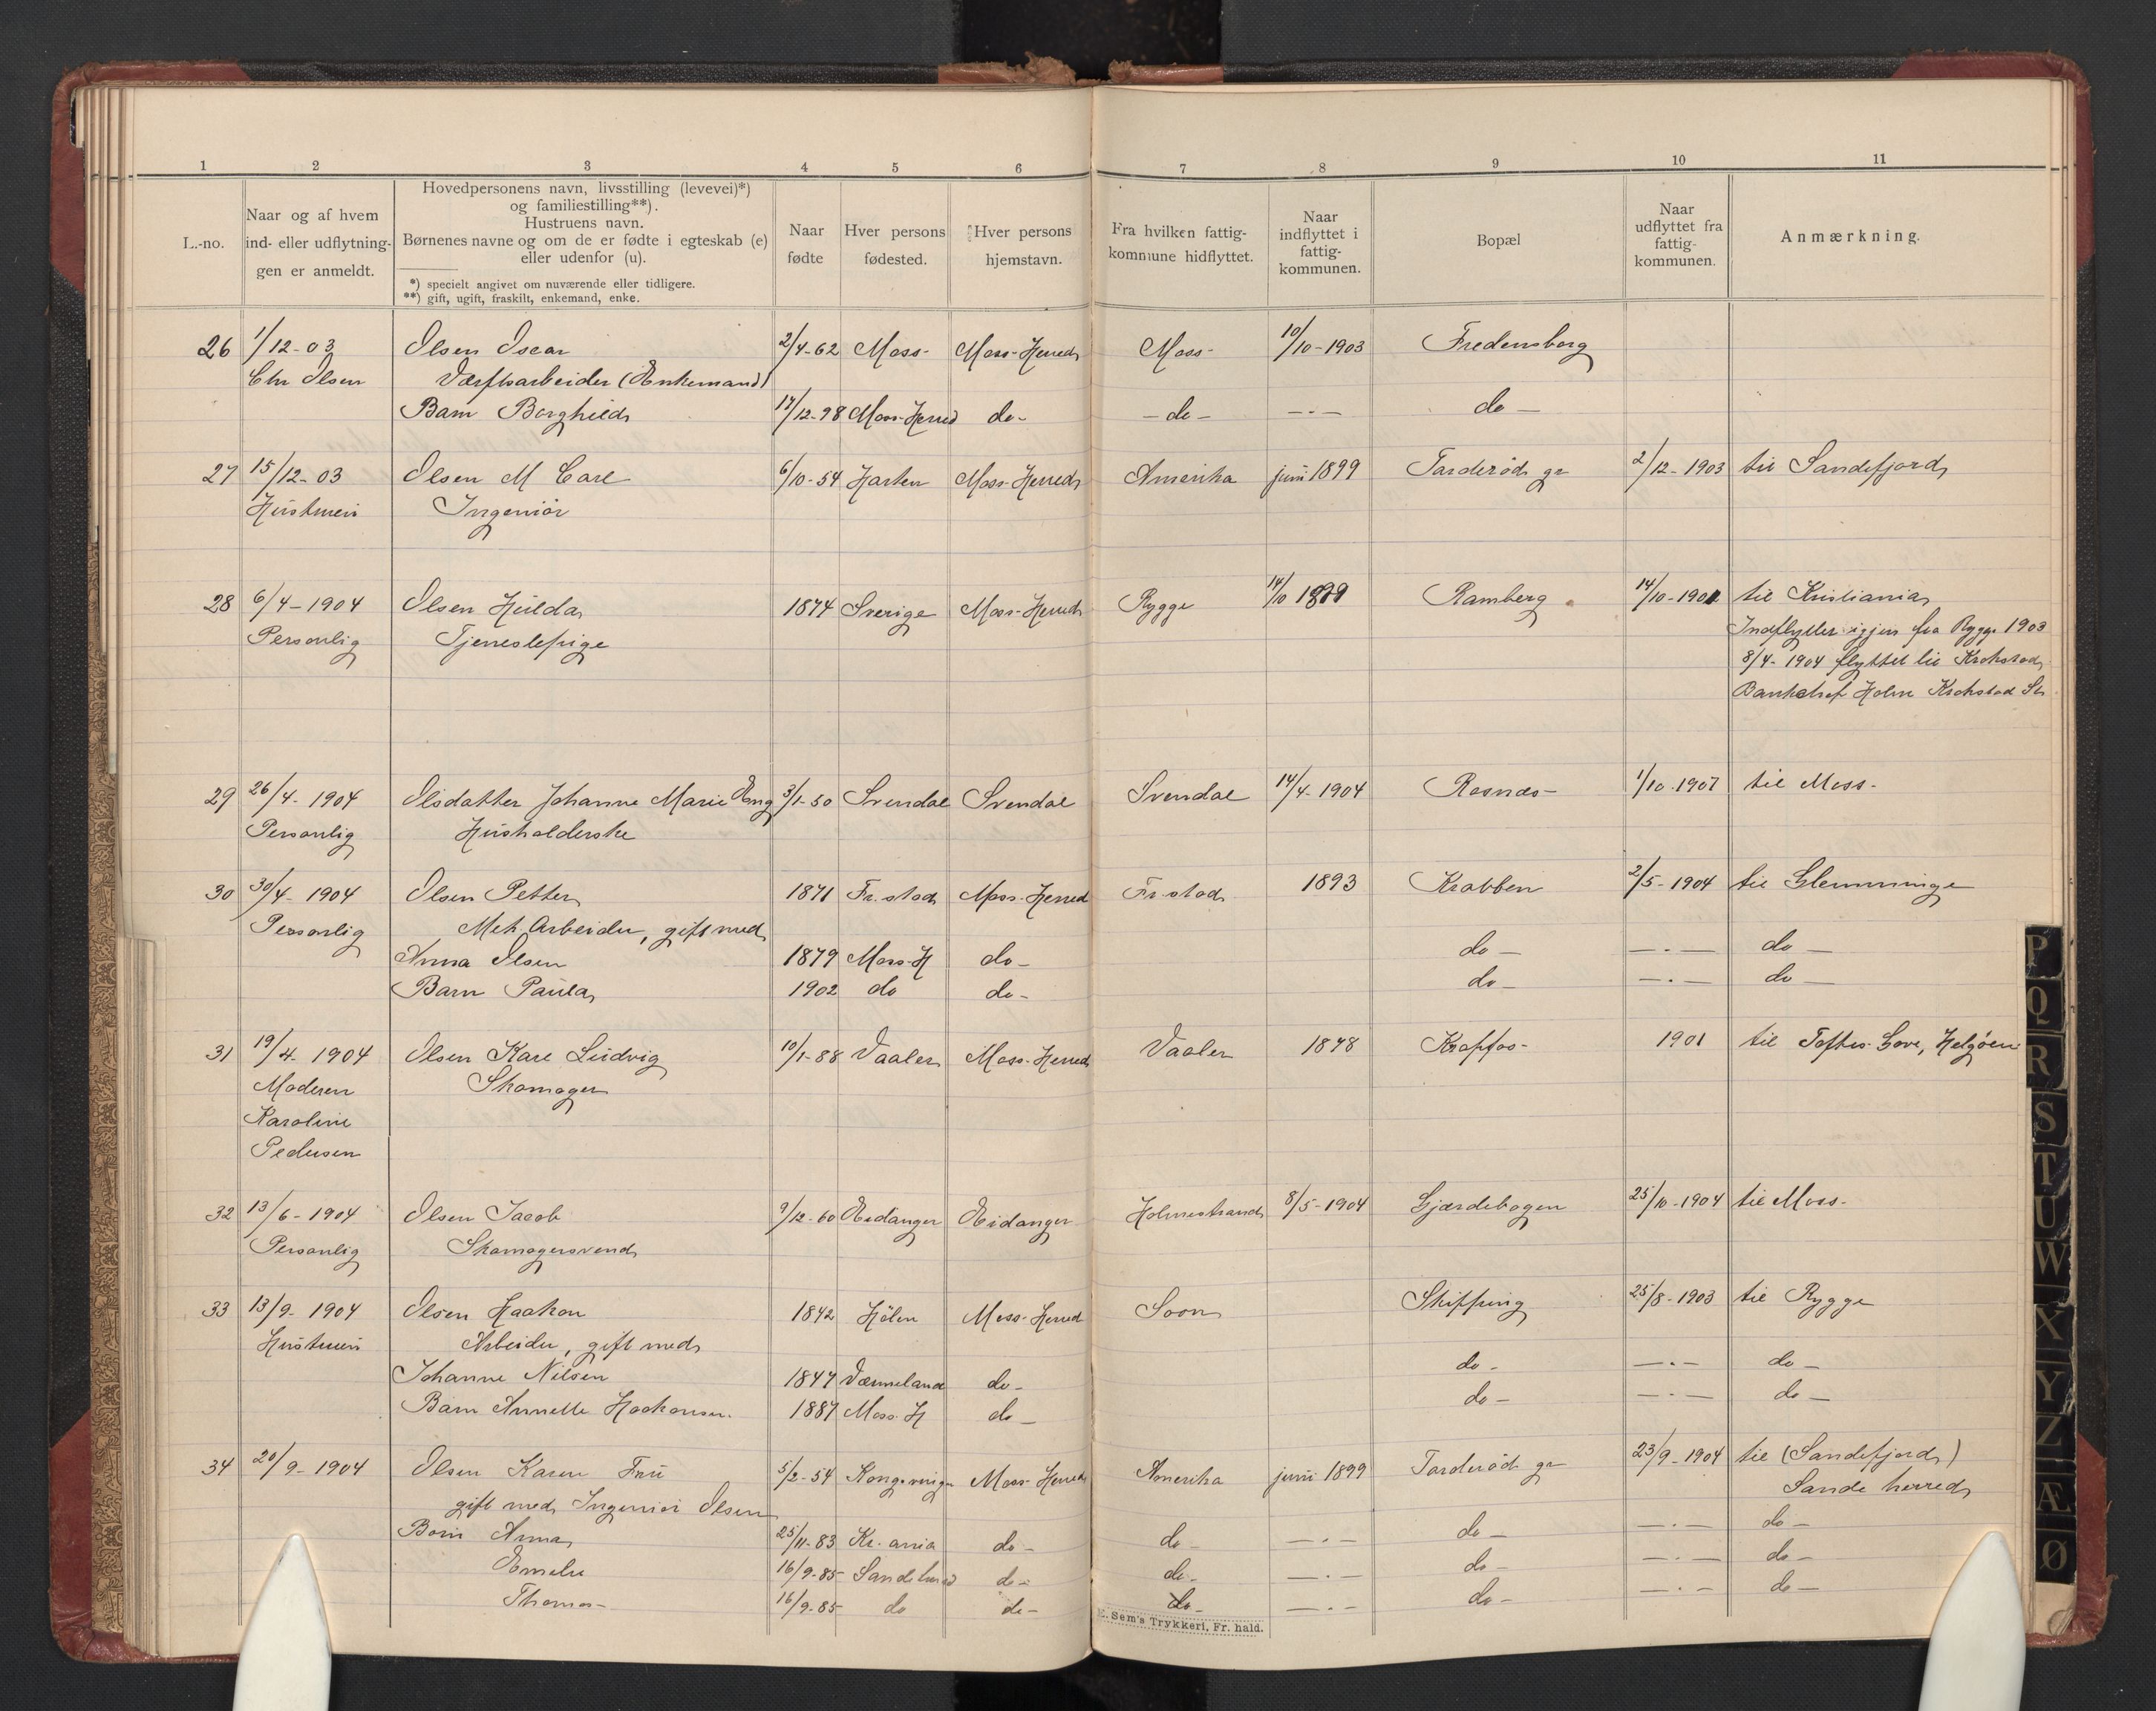 1 2 3 4 5 6 7 8 9 10 11
L.-no.
Naar og af hvem
ind- eller udflytnin-
gen er anmeldt.
Hovedpersonens navn, livsstilling (levevei)*)
og familiestilling**).
Hustruens navn.
Børnenes navne og om de er fødte i egteskab (e)
eller udenfor (u).
*) specielt angivet om nuværende eller tidligere.
**) gift, ugift, fraskilt, enkemand, enke.
Naar
fødte
Hver persons
fødested.
Hver persons
hjemstavn.
Fra hvilken fattig-
kommune hidflyttet.
Naar
indflyttet i
fattig-
kommunen.
Bopæl
Naar
udflyttet fra
fattig-
kommunen.
Anmærkning.
26 1/12-03 Olsen Oscar 2/4-62 Moss- Moss-Herred Moss- 10/10-1903 Fredensborg
Chr Olsen Værftsarbeider (Enkemand)
Barn Borghild 17/12-98 Moss-Herred do- -do- -.- do-
27 15/12-03 Olsen M Carl 6/10-54 Horten Moss-Herred Amerika juni 1899 Tarderød gr 2/12-1903 til Sandefjord
Hustruen Ingeniör
28 6/4-1904 Olsen Hulda 1874 Sverige Moss-Herred Rygge 14/10 1899 Ramberg 14/10-1901 til Kristiania
Personlig Tjenestepige Indflyttet igjen fra Rygge 1903
8/4-1904 flyttet til Krokstad
Bankchef Holm Krokstad St
29 26/4-1904 Olsdatter Johanne Marie Eng 3/1-50 Svendal Svendal Svendal 14/4-1904 Rosnæs- 1/10-1907 til Moss-
Personlig Husholderske
30 30/4-1904 Olsen Petter 1871 Fr.stad Moss-Herred Fr.stad 1893 Krabben 2/5-1904 til Glemminge
Personlig Mek Arbeider, gift med
Anna Olsen 1879 Moss-H do- do- -.- do-
Barn Paula 1902 do do- do- -.- do-
31 19/4-1904 Olsen Karl Ludvig 10/1-88 Vaaler Moss-Herred Vaaler 1898 Krapfos- 1901 til Toftes Gave, Helgöen
Moderen Skomager
Karoline
Pedersen
32 13/6-1904 Olsen Jacob 9/12-60 Eidanger Eidanger Holmestrand 8/5-1904 Gjærdebogen 25/10-1904 til Moss-
Personlig Skomagersvend
33 13/9-1904 Olsen Haakon 1842 Hölen Moss-Herred Soon Skipping 25/8-1903 til Rygge
Hustruen Arbeider, gift med
Johanne Nilsen 1847 Værmeland do- do- -.- do-
Barn Annette Haakonsen 1887 Moss-H do- do- -.- do-
34 20/9-1904 Olsen Karen Fru 5/2-54 Kongsvinger Moss-Herred Amerika juni 1899 Tarderød gr 23/9-1904 til (Sandefjord)
gift med Ingeniør Olsen Sande herred
Børn Anna 25/11-83 Kr.ania do- do- -.- do- -.- do-
Emelie 16/9-85 Sandeherred do- do- -.- do- -.- do-
Thomas- 16/9-85 do do- do- -.- do- -.- do-
E. Sem's Trykkeri, Fr.hald.
P
Q
R
S
T
U
W
X
Y
Z
Æ
Ø